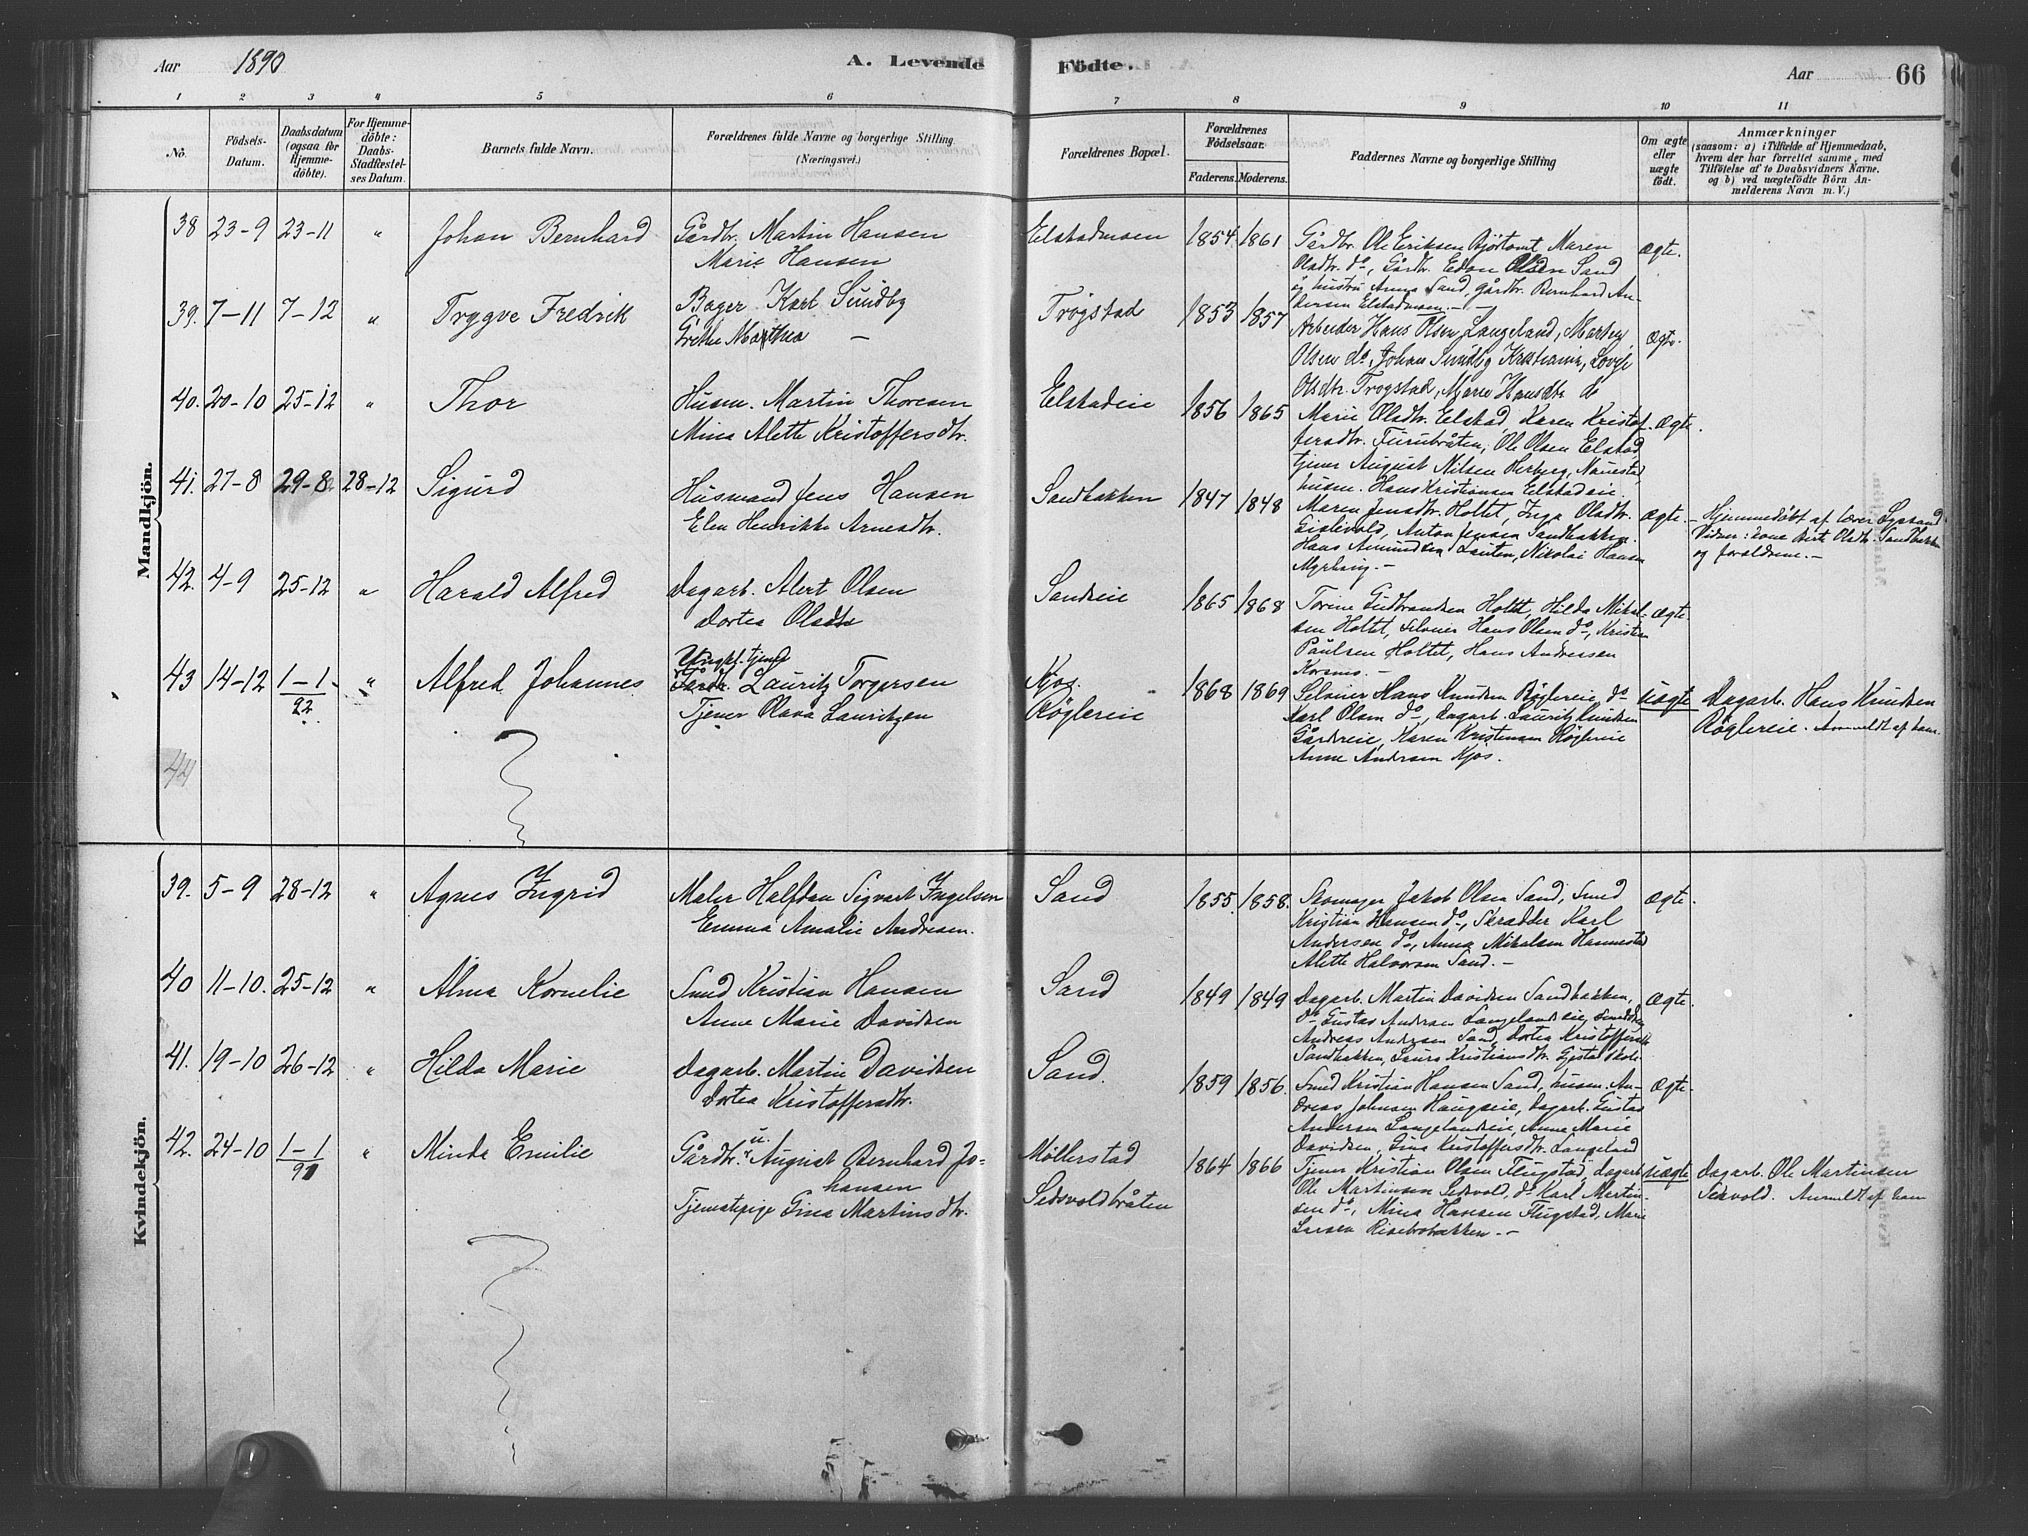 Aar 1890 A. Levende Födte. Aar 66
1 2 3 4 5 6 7 8 9 10 11
No.
Födsels-
Datum.
Daabsdatum
(ogsaa for
Hjemme-
döbte).
For Hjemme-
döbte:
Daabs-
Stadfæstel-
ses Datum.
Barnets fulde Navn.
Forældrenes fulde Navne og borgerlige Stilling
(Næringsvei.)
Forældrenes Bopæl.
Forældrenes
Födselsaar.
Faderens. Moderens.
Faddernes Navne og borgerlige Stilling
Om ægte
eller
uægte
födt.
Anmærkninger
(saasom: a) i Tilfælde af Hjemmedaab,
hvem der har forrettet samme, med
Tilföielse af to Daabsvidners Navne,
og b) ved uægtefödte Börn An-
melderens Navn m. V.)
Mandkjön.
38 23-9 23-11 " Johan Bernhard
Gårdbr. Martin Hansen
Marie Hansen
Elstadmoen 1854. 1861
Gårdbr. Ole Eriksen Bjørtomt Maren
Olsdtr. do, Gårdbr. Edon Olsen Sand
og hustru Anna Sand, gårdbr. Bernhard An-
dersen Elstadmoen.-
Ægte.
39. 7-11 7-12 " Trygve Fredrik
Bager Karl Sundby
Grethe Marthea —
Trøgstad 1853 1857
Arbeider Hans Olsen Langeland, Marthe
Olsen do, Johan Sundby Kristiania, Lovise
Olsdtr. Trøgstad, Marie Hansdtr. do
Ægte.
40. 20-10 25-12 " Thor
Husm. Martin Thoresen
Mina Alette Kristoffersdtr.
Elstadeie 1856 1865
Marie Olsdtr. Elstad, Karen Kristof-
fersdtr. Furubråten, Ole Olsen Elstad,
tjener August Nilsen Herberg, Nauestad
husm. Hans Kristiansen Elstadeie.
Ægte.
41. 27-8 29-8 28-12 Sigurd
Husmand Jens Hansen
Elen Henrikke Arnesdtr.
Sandbakken 1847 1848
Maren Jensdtr. Holtet, Inga Olsdtr.
Eidsvold, Anton Jensen Sandbakken.
Hans Amundsen Lauten, Nikolai Hansen
Myrhaug.-
Ægte.-
Hjemmedøbt af lærer Sysrand
Vidner: kone Berte Olsdtr. Sandbakken
og forældrene.-
42. 4-9 25-12 " Harald Alfred
Dagarb. Alert Olsen
Dortea Olsdtr
Sandeie 1865 1868
Torine Gudbrandsen Holtet, Hilda Mikal-
sen Holtet, Selveier Hans Olsen do, Kristian
Paulsen Holtet, Hans Andressen
Korsmo.-
Ægte
43 14-12 1-1/92 " Alfred Johannes
Ungk. tjener
Gårdbr. Lauritz Torgersen
Tjener Olava Lauritzen
Kjos.
Røglereie
1868 1869
Selveier Hans Knudsen Røglereie do
Karl Olsen do, dagarb. Lauritz Knudsen
Gårdereie, Karen Kristensen Røglereie
Anne Andersen Kjos.
uægte
Dagarb. Hans Knudsen
Røglereie. Anmeldt af ham.
44
Kvindekjön.
39. 5-9 28-12 " Agnes Ingrid
Maler Halfdan Sigvart Ingelsen
Emma Amalie Andresen.
Sand 1855. 1858.
Skomager Jakob Olsen Sand, Smed
Kristian Hansen do, Skrædder Karl
Andersen do, Anna Mikalsen Hannestad
Alette Halvorsen Sand.-
Ægte.
40 11-10. 25-12 " Alma Kornelie
Smed Kristian Hansen
Anne Marie Davidsen
Sand 1849 1849
Dagarb. Martin Davidsen Sandbakken,
do Gustav Andersen Langelandseie, Smeddr.
Andreas Andersen Sand, Dortea Kristoffersdtr.
Sandbakken, Laura Kristiansdtr. Gjestad skole
Ægte.
41. 19-10 26-12 " Hilda Marie
Dagarb. Martin Davidsen
Dortea Kristoffersdtr.
Sand. 1859 1856.
Smed Kristian Hansen Sand, husm. An-
dreas Johnsen Haugseie, Dagarb. Gustav
Andersen Langelandseie, Anne Marie
Davidsen, Gina Kristoffersdtr. Langeland
Ægte.
42. 24-10 1-1/91 " Minda Emilie
Gårdbr. u. August Bernhard Jo-
hansen
Tjenestepige Gina Martinsdtr.
Møllerstad
Sedsvoldbråten
1864 1866
Tjener Kristian Olsen Flugstad, dagarb.
Ole Martinsen Seksvold, do Karl Martin-
sen do, Mina Hansen Flugstad, Marie
Larsen Risebrobakken.-
uægte
Dagarb. Ole Martinsen
Seksvold. Anmeldt af ham